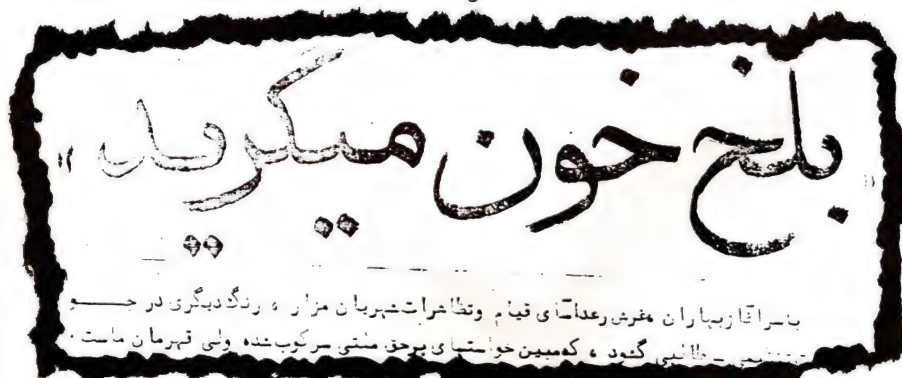 « بلخ خون میگرید »
با سرآغاز بهاران ، غرش رعدآسای قیام وتظاهرات شهریان مزار ، رنگ دیگری در جـــو
طلبی گشود ، که مبین خواستهای برحق ملتی سرکوب شده ولی قهرمان ماست .